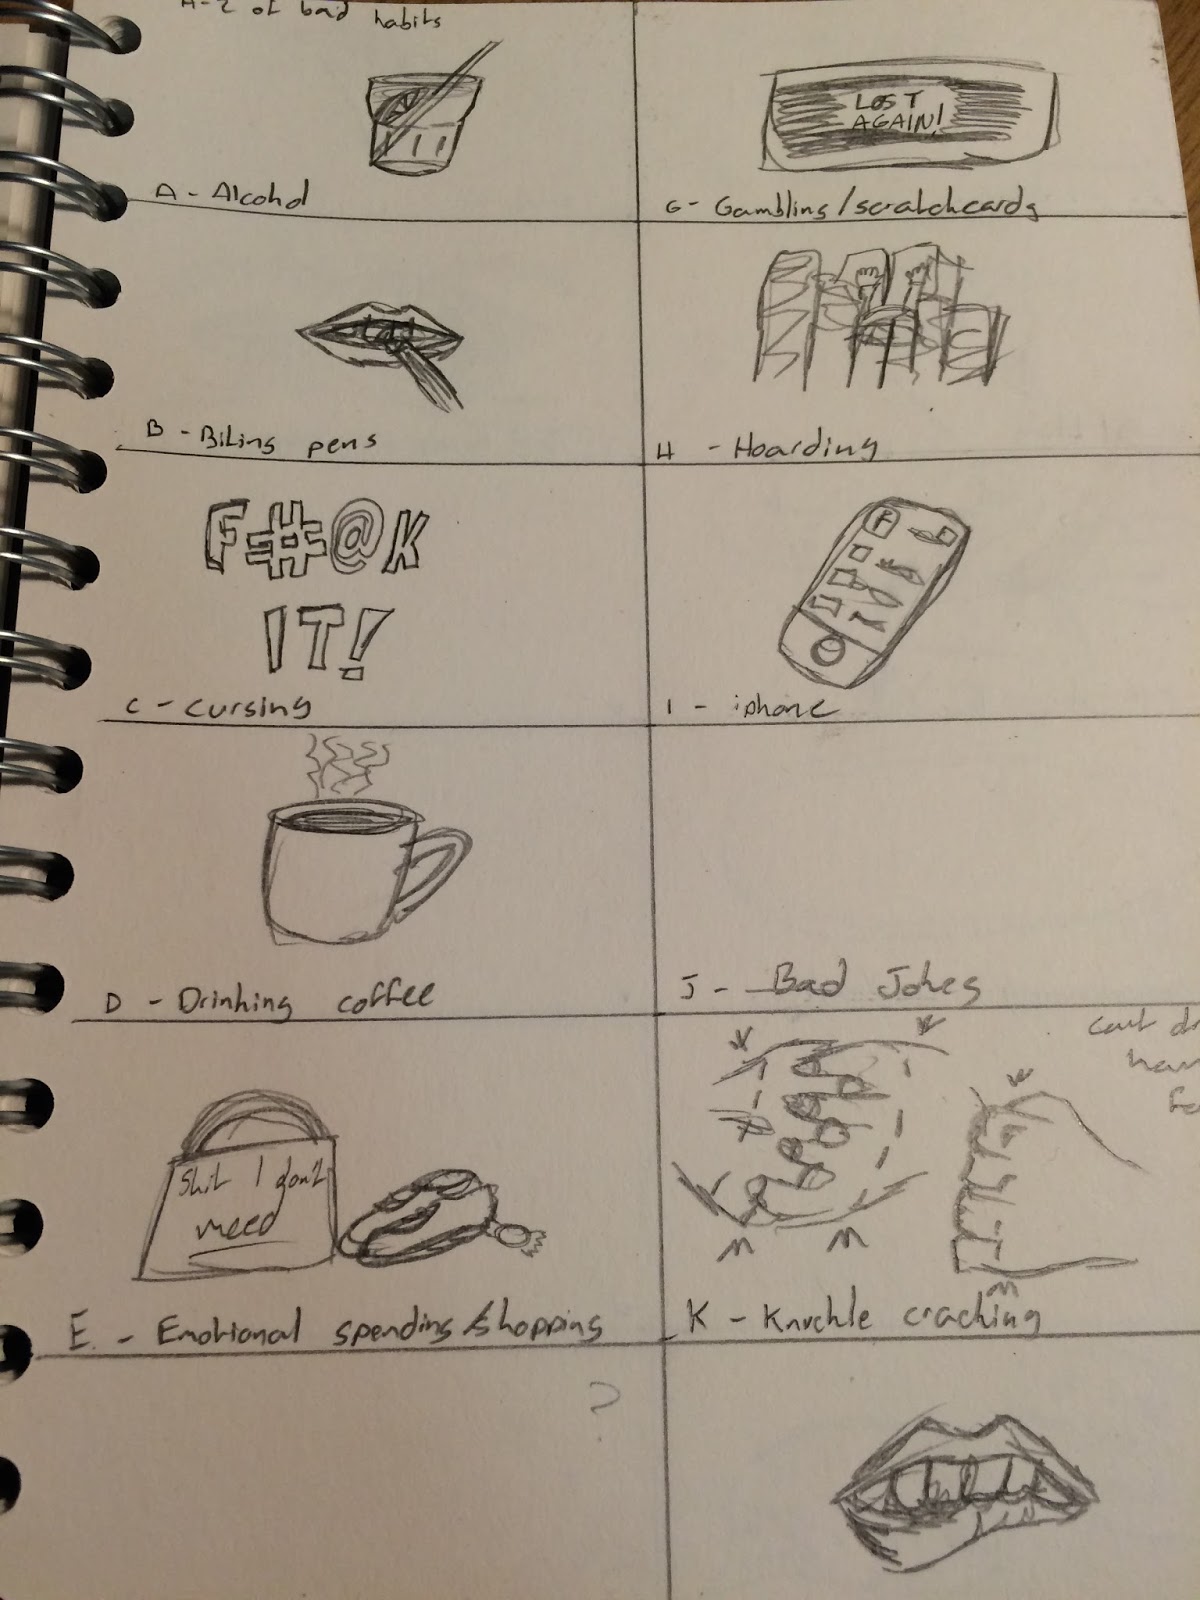 A-Z of bad habits
A - Alcohol
B - Biting pens
F#@K
IT!
C - Cursing
D - Drinking coffee
Shit I don't
need
E - Emotional spending/shopping
?
LOST
AGAIN!
G - Gambling/scratchcards
H - Hoarding
I - iphone
J - Bad Jokes
K - Knuckle cracking